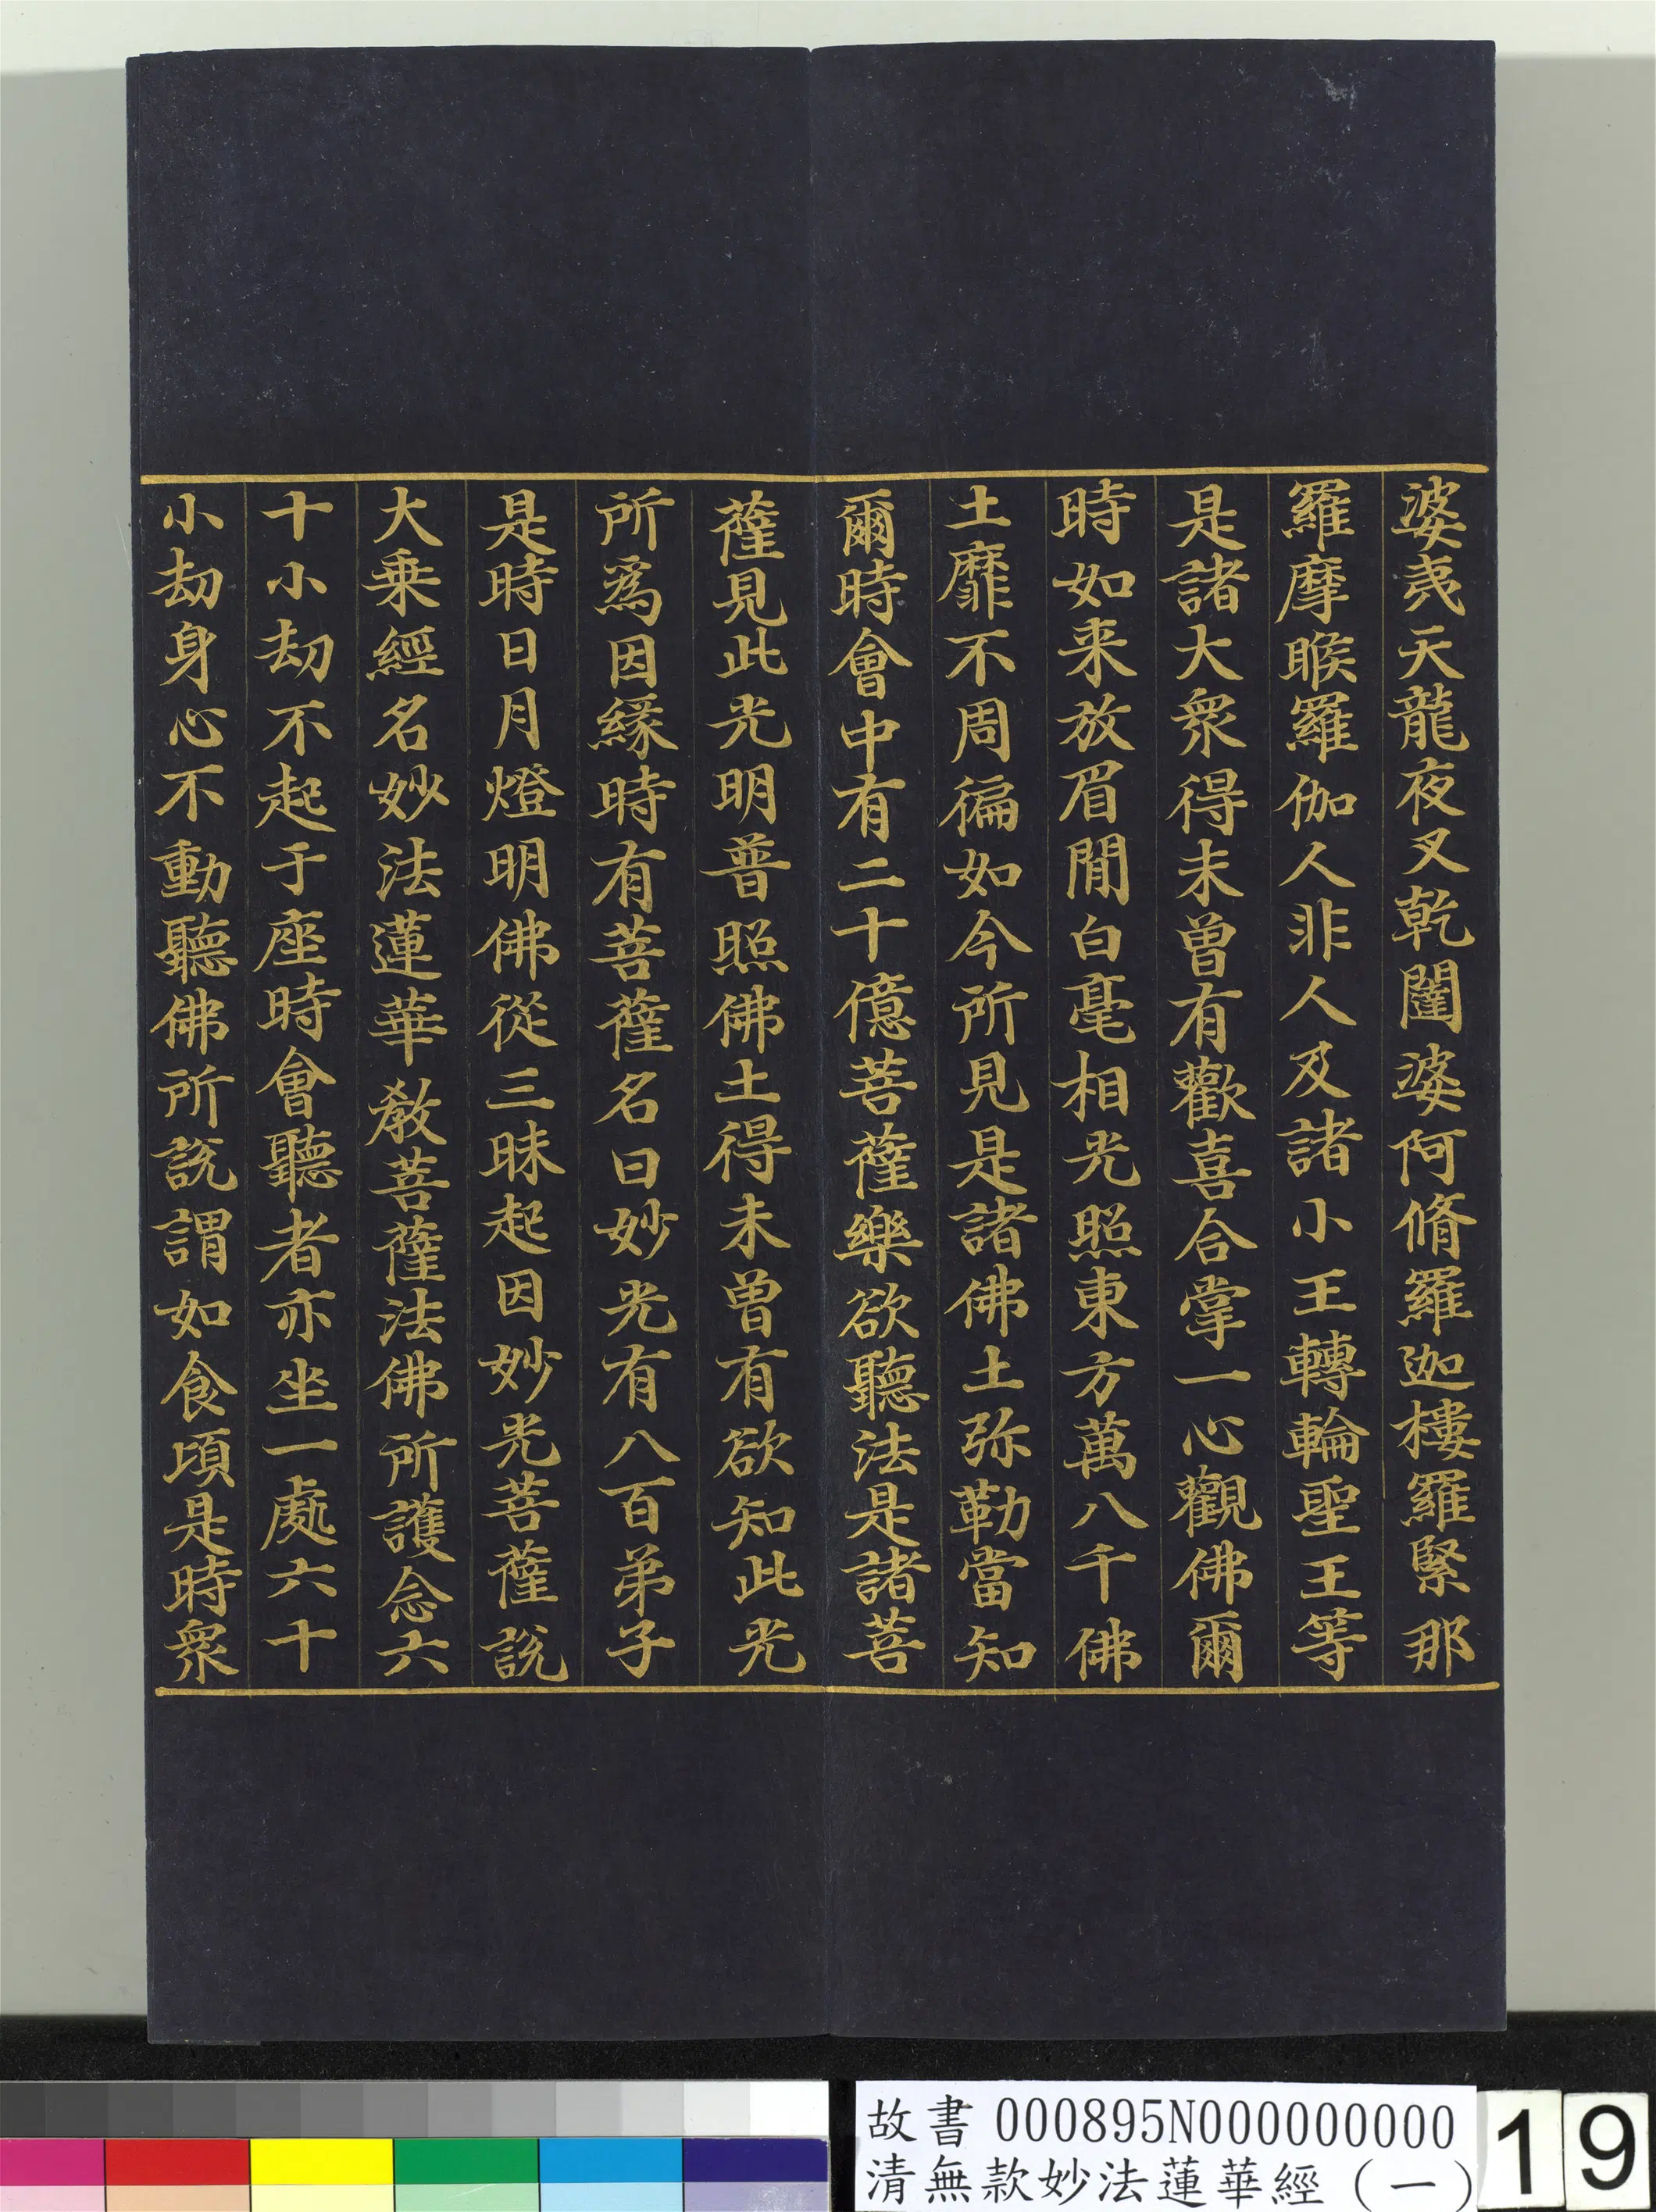 婆夷天龍夜叉乾闥婆阿脩羅迦樓羅緊那
羅摩睺羅伽人非人及諸小王轉輪聖王等
是諸大衆得未曾有歡喜合掌一心觀佛爾
時如来放眉閒白毫相光照東方萬八千佛
土靡不周徧如今所見是諸佛土弥勒當知
爾時會中有二十億菩薩樂欲聽法是諸菩
薩見此光明普照佛土得未曾有欲知此光
所爲因緣時有菩薩名曰妙光有八百弟子
是時日月燈明佛從三昧起因妙光菩薩說
大乗經名妙法蓮華教菩薩法佛所護念六
十小劫不起于座時會聽者亦坐一處六十
小劫身心不動聽佛所說謂如食頃是時衆
故書 000895N000000000
清無款妙法蓮華經（一）
19